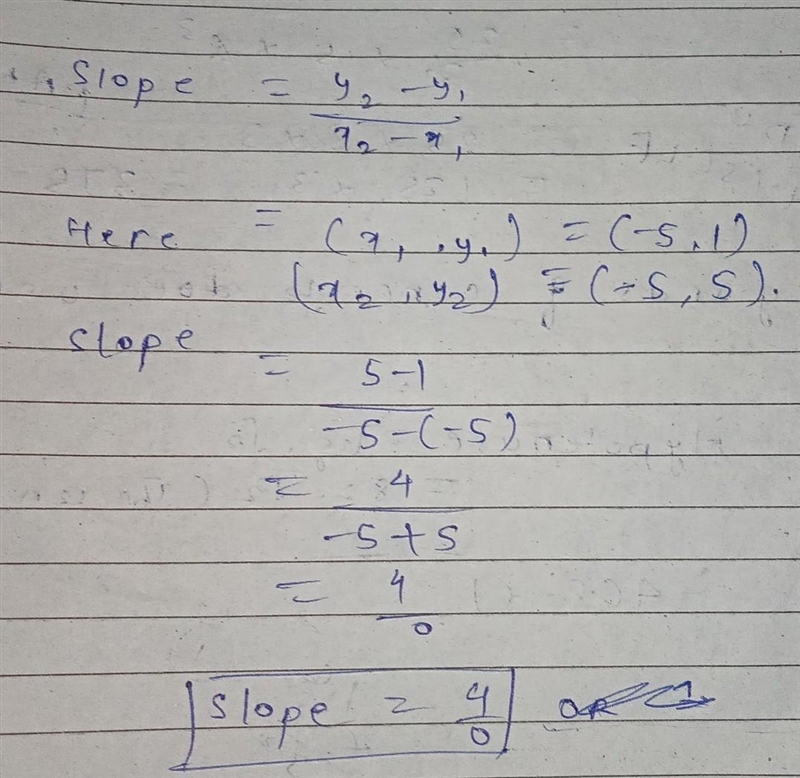 Slope = y₂ - y₁ / x₂ - x₁
Here = (x₁, y₁) = (-5, 1)
(x₂, y₂) = (-5, 5).
Slope = 5-1 / -5-(-5)
= 4 / -5+5
= 4 / 0
Slope = 4 / 0 OR